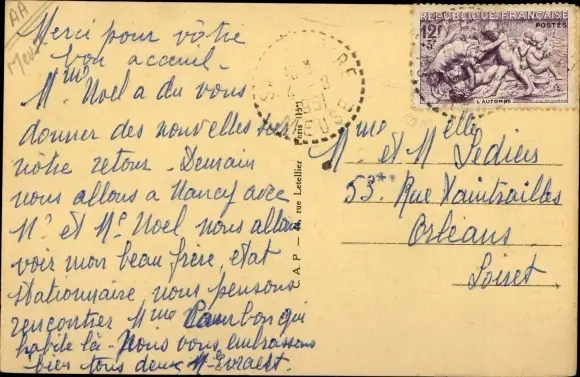 AA
Merci pour vôtre
bon acceuil.
Mme Noel a du vous
donner des nouvelles sur
nôtre retour. Demain
nous allons à Nancy avec
Mr et Me Noel nous allons
voir mon beau frère, etat
stationnaire, nous pensons
rencontrer Mme Cambon qui
habite là. Nous vous embrassons
bien tous deux
C.A.P. — rue Letellier Paris (15e)
1951
MEUSE
REPUBLIQUE FRANÇAISE
12F
+3F
POSTES
L'AUTOMNE
Mme et Melle Lediers
53 Rue Xaintrailles
Orléans
Loiret